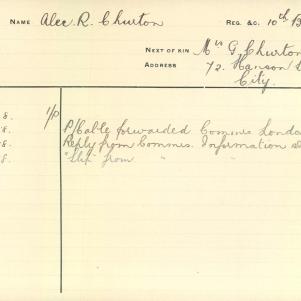 NAME Alec R. Churton REG. &C. 10th B
NEXT OF KIN Mrs G. Churton
ADDRESS 72. Hanson S
City.
8. 1/P
8. P/Cable forwarded Commrs Londo
8. Reply from Commrs. Information
8. "Slip" from " "